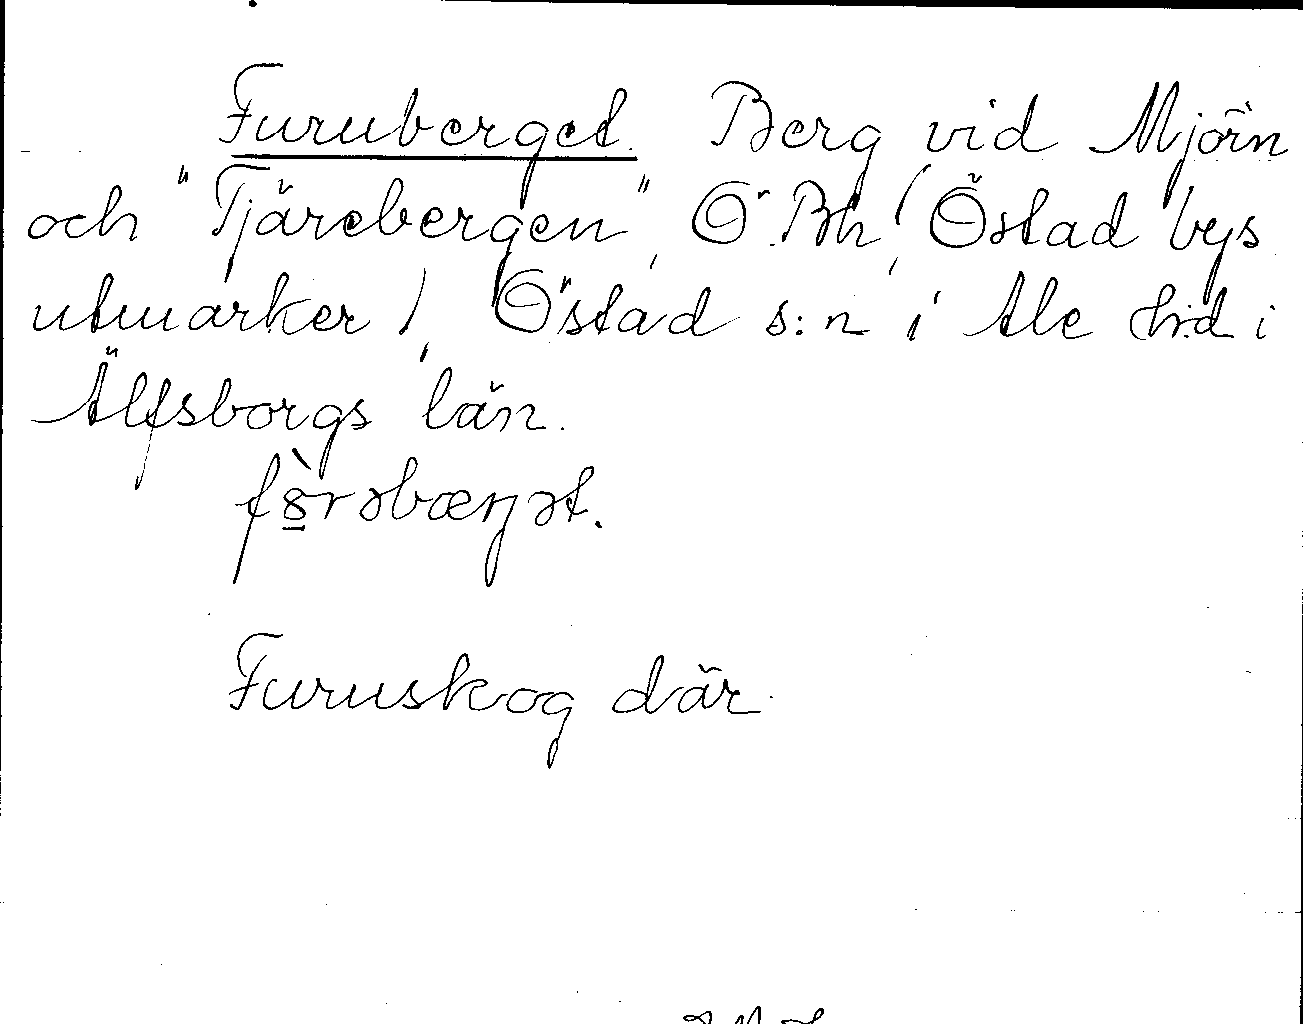 Furuberget. Berg vid Mjörn
och "Tjärebergen", Ö. Bh, (Östad bys
utmarker), Östad s:n i Ale hd i
Älfsborgs län.
fö̀rəbærjət.
Furuskog där.